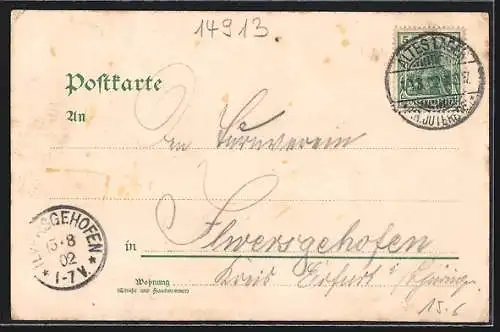 14913
Postkarte
An
den Turnverein
in Ilversgehofen
Kreis Erfurt i/Thüringen
Wohnung
(Straße und Hausnummer)
15.6
5
ALTES LAGER
JÜTERBOG
ILVERSGEHOFEN
8
02
1-7V.